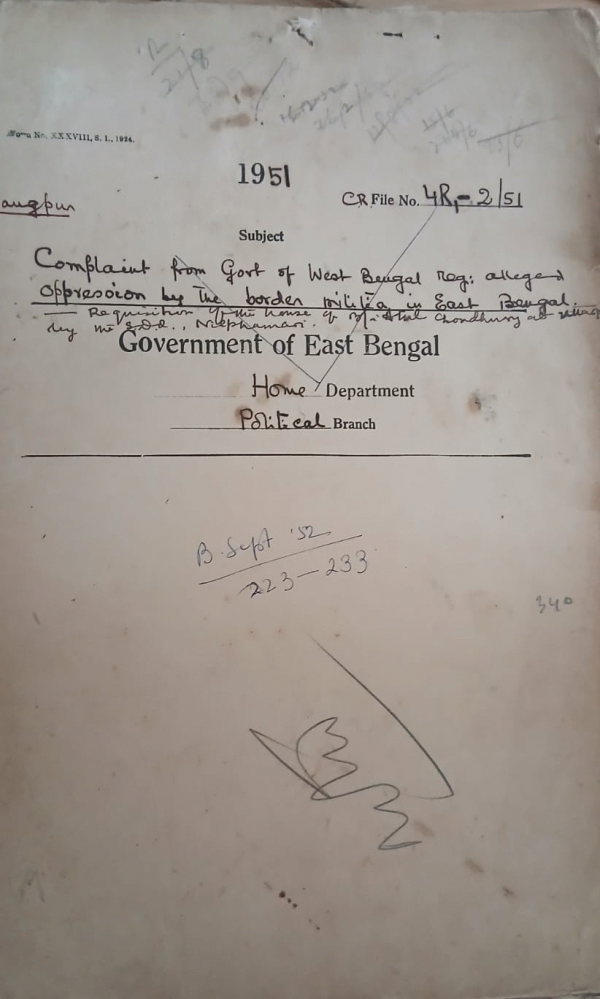 Form No. XXXVIII, S. 1., 1924.
1951
angpur
CR File No. 4R,- 2/51
Subject
Complaint from Govt of West Bengal reg: alleged
oppression by the border militia in East Bengal.
— Requisition of the house of Choudhury at
by the S.D.O., Nilphamari.
Government of East Bengal
Home Department
Political Branch
B. Sept '52
223–233
340